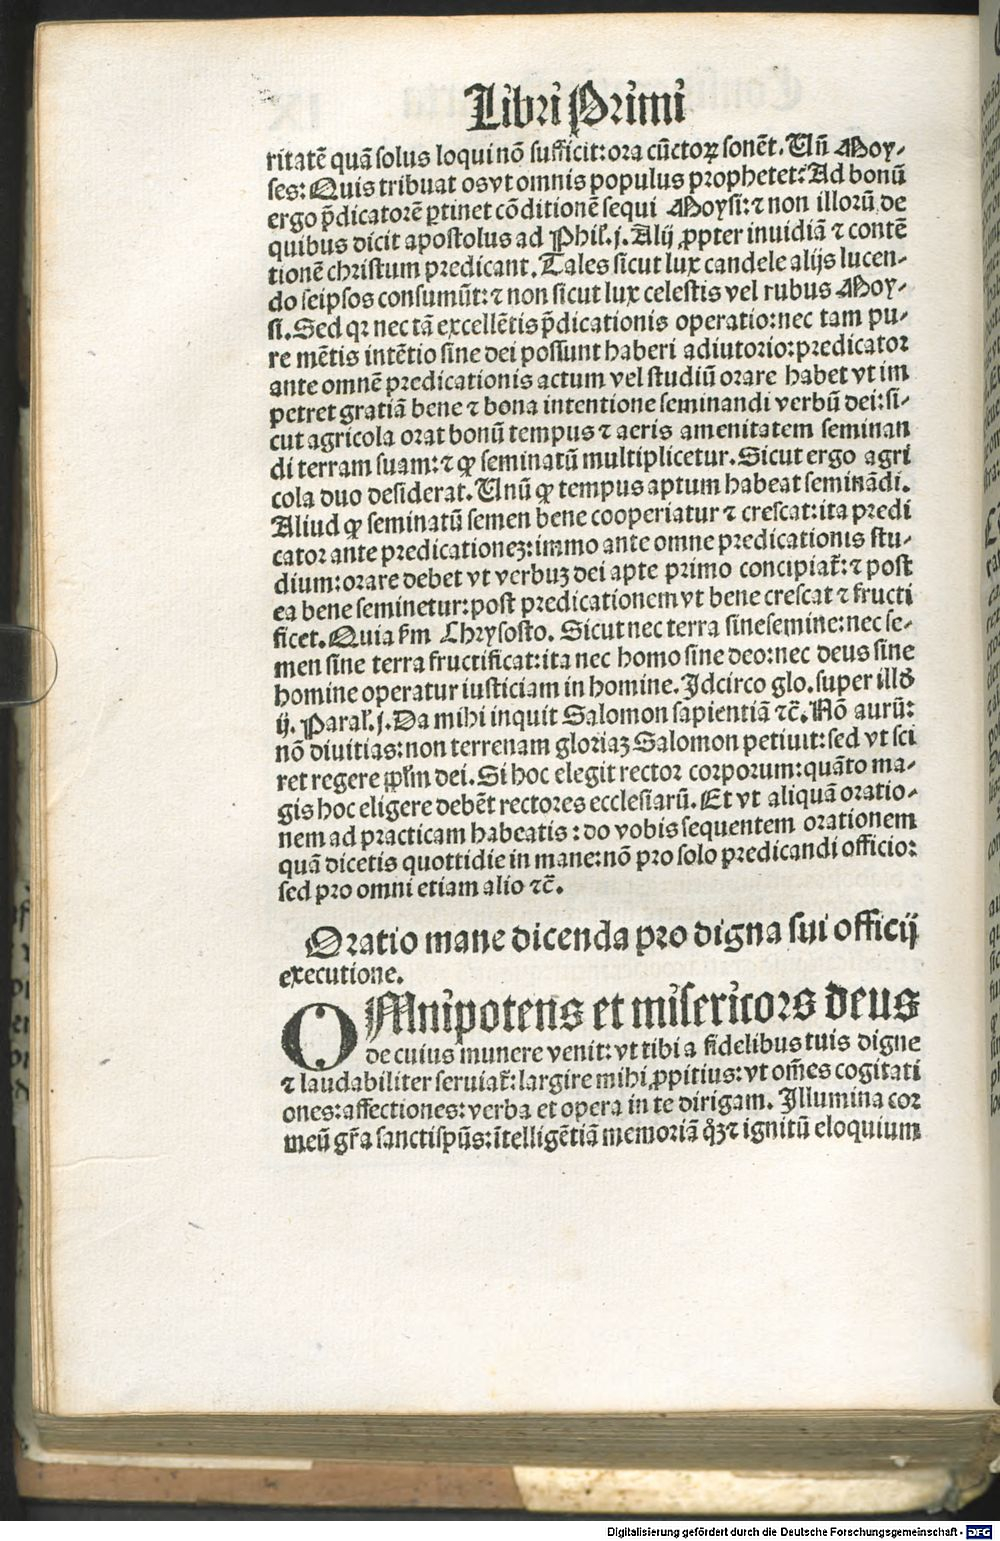 Libri Primi
ritatē quā solus loqui nō sufficit: ora cūctoꝝ sonēt. Uñ Moy-
ses: Quis tribuat os vt omnis populus prophetet: Ad bonū
ergo p̄dicatorē ꝑtinet cōditionē sequi Moysi: ⁊ non illorū de
quibus dicit apostolus ad Phil. j. Alij ꝓpter inuidiā ⁊ contē
tionē christum predicant. Tales sicut lux candele alijs lucen-
do seipsos consumūt: ⁊ non sicut lux celestis vel rubus Moy-
si. Sed qꝛ nec tā excellētis p̄dicationis operatio: nec tam pu-
re mētis intētio sine dei possunt haberi adiutorio: predicator
ante omnē predicationis actum vel studiū orare habet vt im
petret gratiā bene ⁊ bona intentione seminandi verbū dei: si-
cut agricola orat bonū tempus ⁊ aeris amenitatem seminan
di terram suam: ⁊ ꝙ seminatū multiplicetur. Sicut ergo agri
cola duo desiderat. Unū ꝙ tempus aptum habeat seminādi.
Aliud ꝙ seminatū semen bene cooperiatur ⁊ crescat: ita predi
cator ante predicationeꝫ: immo ante omne predicationis stu-
dium: orare debet vt verbuꝫ dei apte primo concipiat᷑: ⁊ post
ea bene seminetur: post predicationem vt bene crescat ⁊ fructi
ficet. Quia ẜm Chrysosto. Sicut nec terra sine semine: nec se-
men sine terra fructificat: ita nec homo sine deo: nec deus sine
homine operatur iusticiam in homine. Idcirco glo. super illd̓
ij. Paral. j. Da mihi inquit Salomon sapientiā ⁊c̄. Nō aurū:
nō diuitias: non terrenam gloriaꝫ Salomon petiuit: sed vt sci
ret regere pp̄lm dei. Si hoc elegit rector corporum: quāto ma-
gis hoc eligere debēt rectores ecclesiarū. Et vt aliquā oratio-
nem ad practicam habeatis: do vobis sequentem orationem
quā dicetis quottidie in mane: nō pro solo predicandi officio:
sed pro omni etiam alio ⁊c̄.
Oratio mane dicenda pro digna sui officij
executione.
OMnipotens et misericors deus
de cuius munere venit: vt tibi a fidelibus tuis digne
⁊ laudabiliter seruiat᷑: largire mihi ꝓpitius: vt om̄es cogitati
ones: affectiones: verba et opera in te dirigam. Illumina cor
meū gr̄a sancti sp̄us: ītelligētiā memoriā qꝫ ⁊ ignitū eloquium
Digitalisierung gefördert durch die Deutsche Forschungsgemeinschaft - DFG